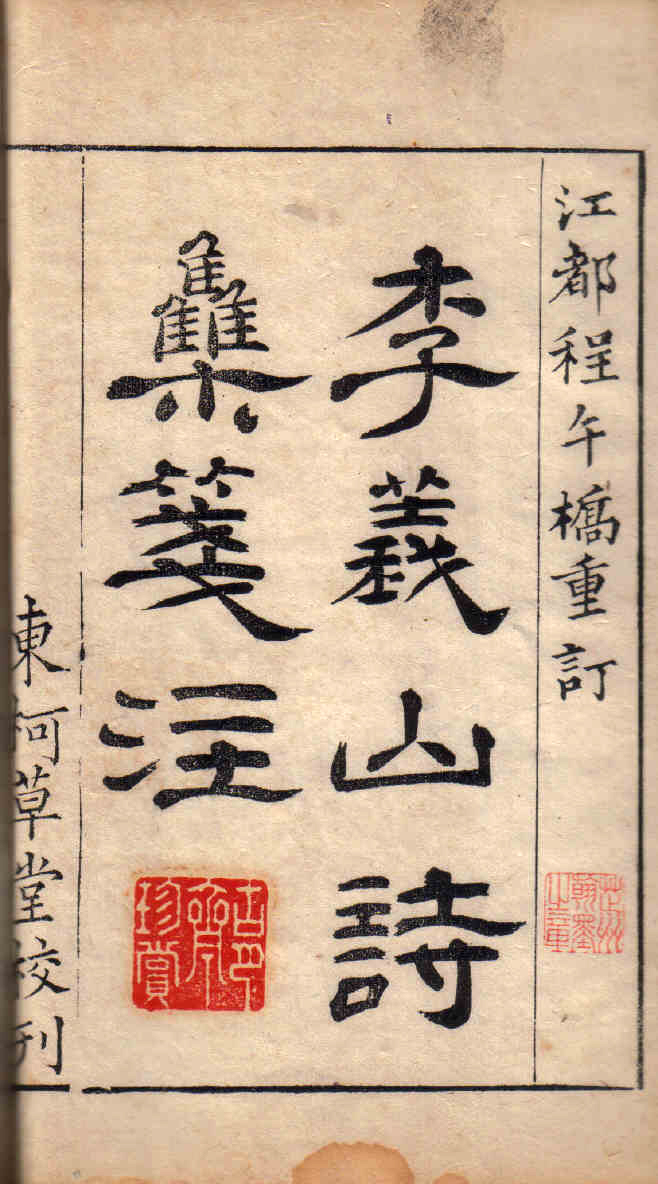 江都程午橋重訂
李義山詩
集箋注
東柯草堂校刊
珍賞